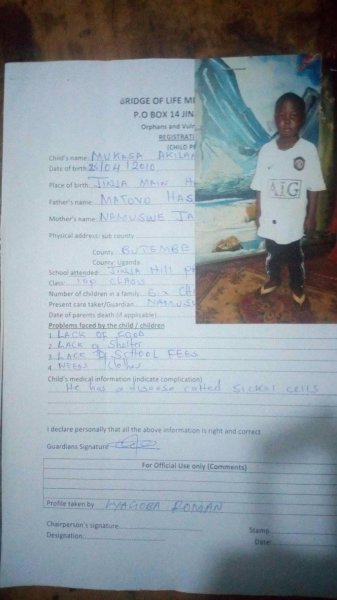 BRIDGE OF LIFE
P.O BOX 14 JIN
Orphans and Vuln
REGISTRATI
(CHILD P
Child's name: MUKASA AKILAM
Date of birth: 25/04/2010
Place of birth: JINJA MAIN H
Father's name: MATOVO HAS
Mother's name: NAMUSWE JA
Physical address: sub county
County BUTEMBE
County: Uganda
School attended: JINJA Hill PR
Class: Top CLASS
Number of children in a family: Six CH
Present care taker/Guardian: NAMUSW
Date of parents death (if applicable)
Problems faced by the child / children
1. LACK OF FOOD
2. LACK of Shelter
3. LACK OF SCHOOL FEES
4. NEEDS Clothes
Child's medical information (indicate complication)
He has a disease called Sickel cells
I declare personally that all the above information is right and correct
Guardians Signature
For Official Use only (Comments)
Profile taken by ROMAN
Chairperson's signature
Stamp
Designation
Date
AIG